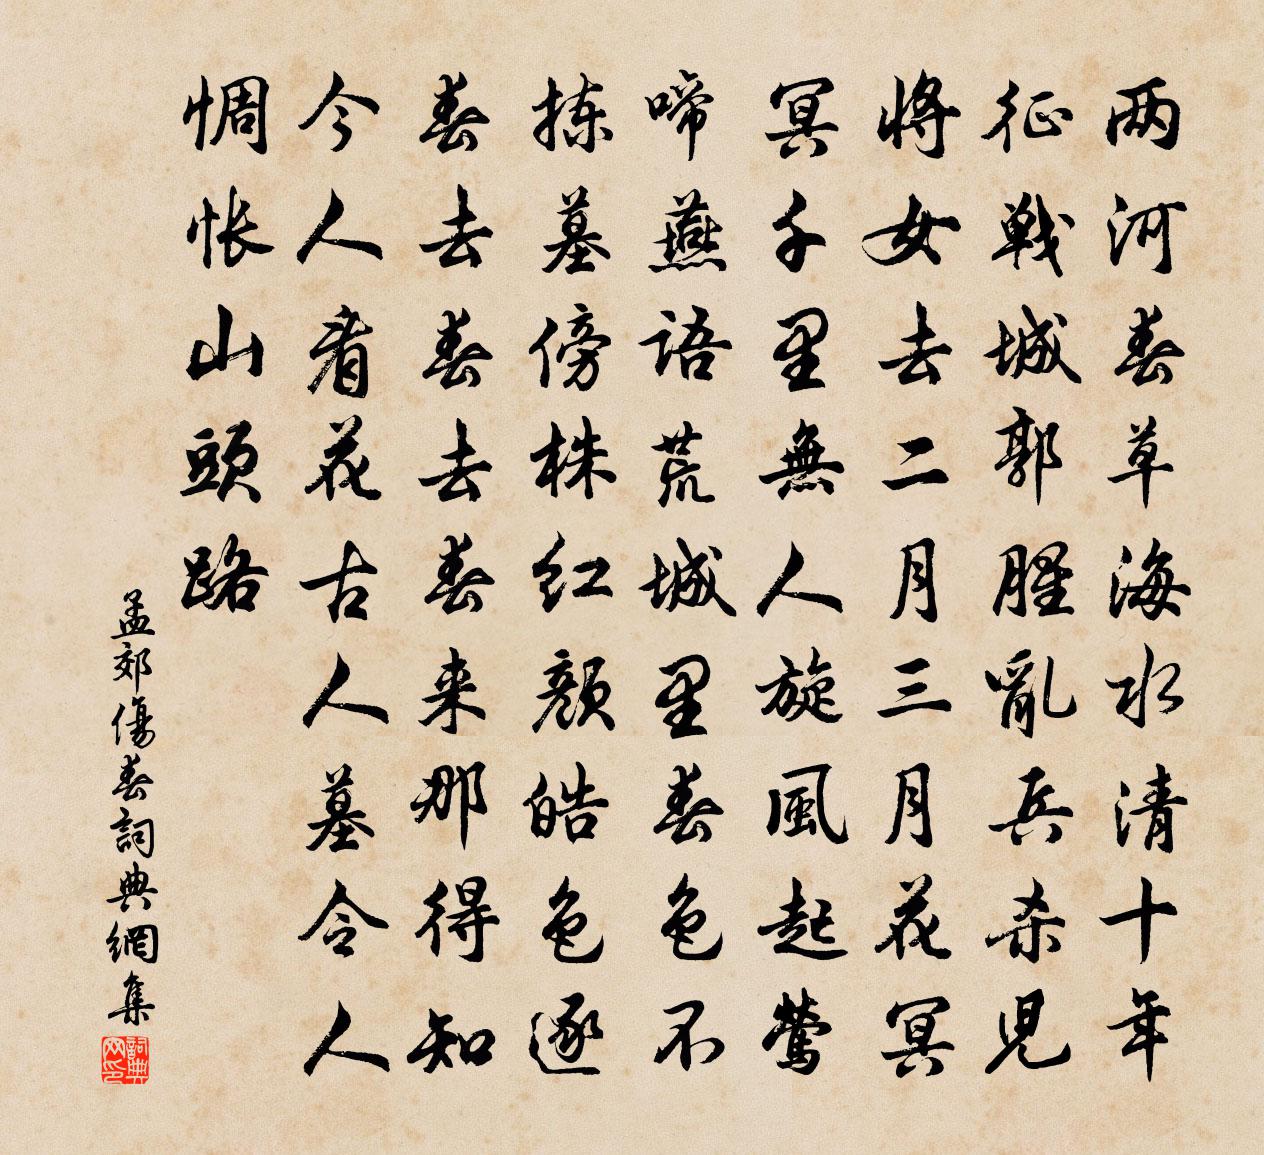 两河春草海水清十年
征戦城郭腥亂兵杀児
将女去二月三月花冥
冥千里無人旋風起鶯
啼燕語荒城里春色不
拣墓傍株红顔皓色逐
春去春去春来那得知
今人看花古人墓令人
惆怅山頭路
孟郊傷春詞典網集
詞典网印